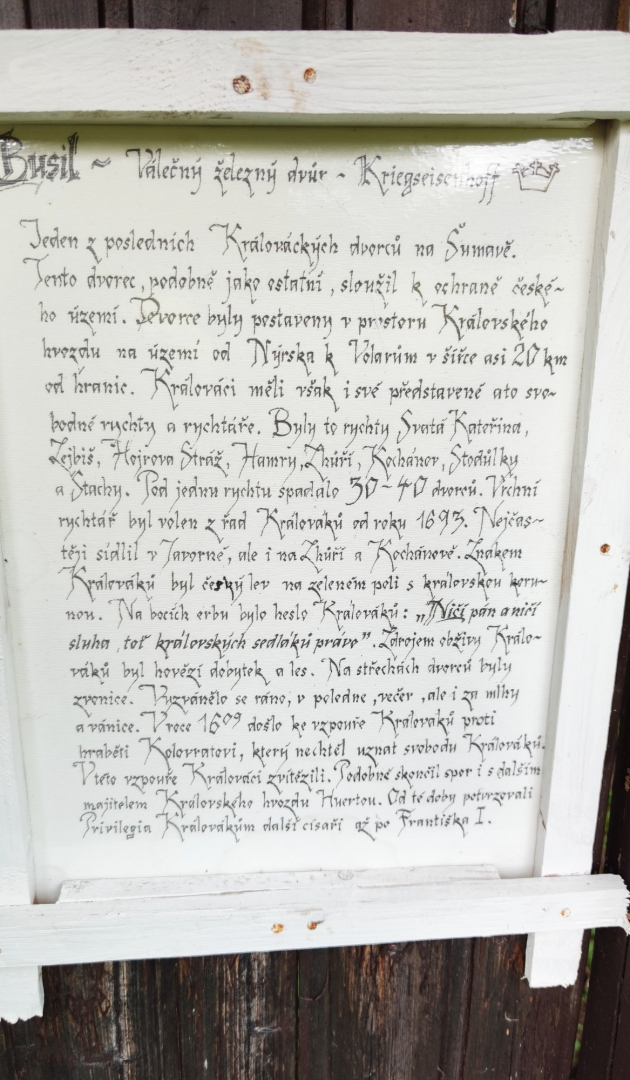 Busil ~ Válečný železný dvůr ~ Kriegseisenhoff
Jeden z posledních Králováckých dvorců na Šumavě.
Tento dvorec, podobně jako ostatní, sloužil k ochraně české~
ho území. Dvorce byly postaveny v prostoru Královského
hvozdu na území od Nýrska k Volarům v šířce asi 20 km
od hranic. Králováci měli však i své představené a to svo~
bodné rychty a rychtáře. Byly to rychty Svatá Kateřina,
Zejbiš, Hojsova Stráž, Hamry, Zhůří, Kochánov, Stodůlky
a Stachy. Pod jednu rychtu spadalo 30~40 dvorců. Vrchní
rychtář byl volen z řad Králováků od roku 1693. Nejčas~
těji sídlil v Javorné, ale i na Zhůří a Kochánově. Znakem
Králováků byl český lev na zeleném poli s královskou koru~
nou. Na bocích erbu bylo heslo Králováků: „Ničí pán a ničí
sluha, toť královských sedláků právo". Zdrojem obživy Králo~
váků byl hovězí dobytek a les. Na střechách dvorců byly
zvonice. Vyzvánělo se ráno, v poledne, večer, ale i za mlhy
a vánice. V roce 1609 došlo ke vzpouře Králováků proti
hraběti Kolovratovi, který nechtěl uznat svobodu Králováků.
V této vzpouře Králováci zvítězili. Podobně skončil spor i s dalším
majitelem Královského hvozdu Huertou. Od té doby potvrzovali
Privilegia Královákům další císaři až po Františka I.